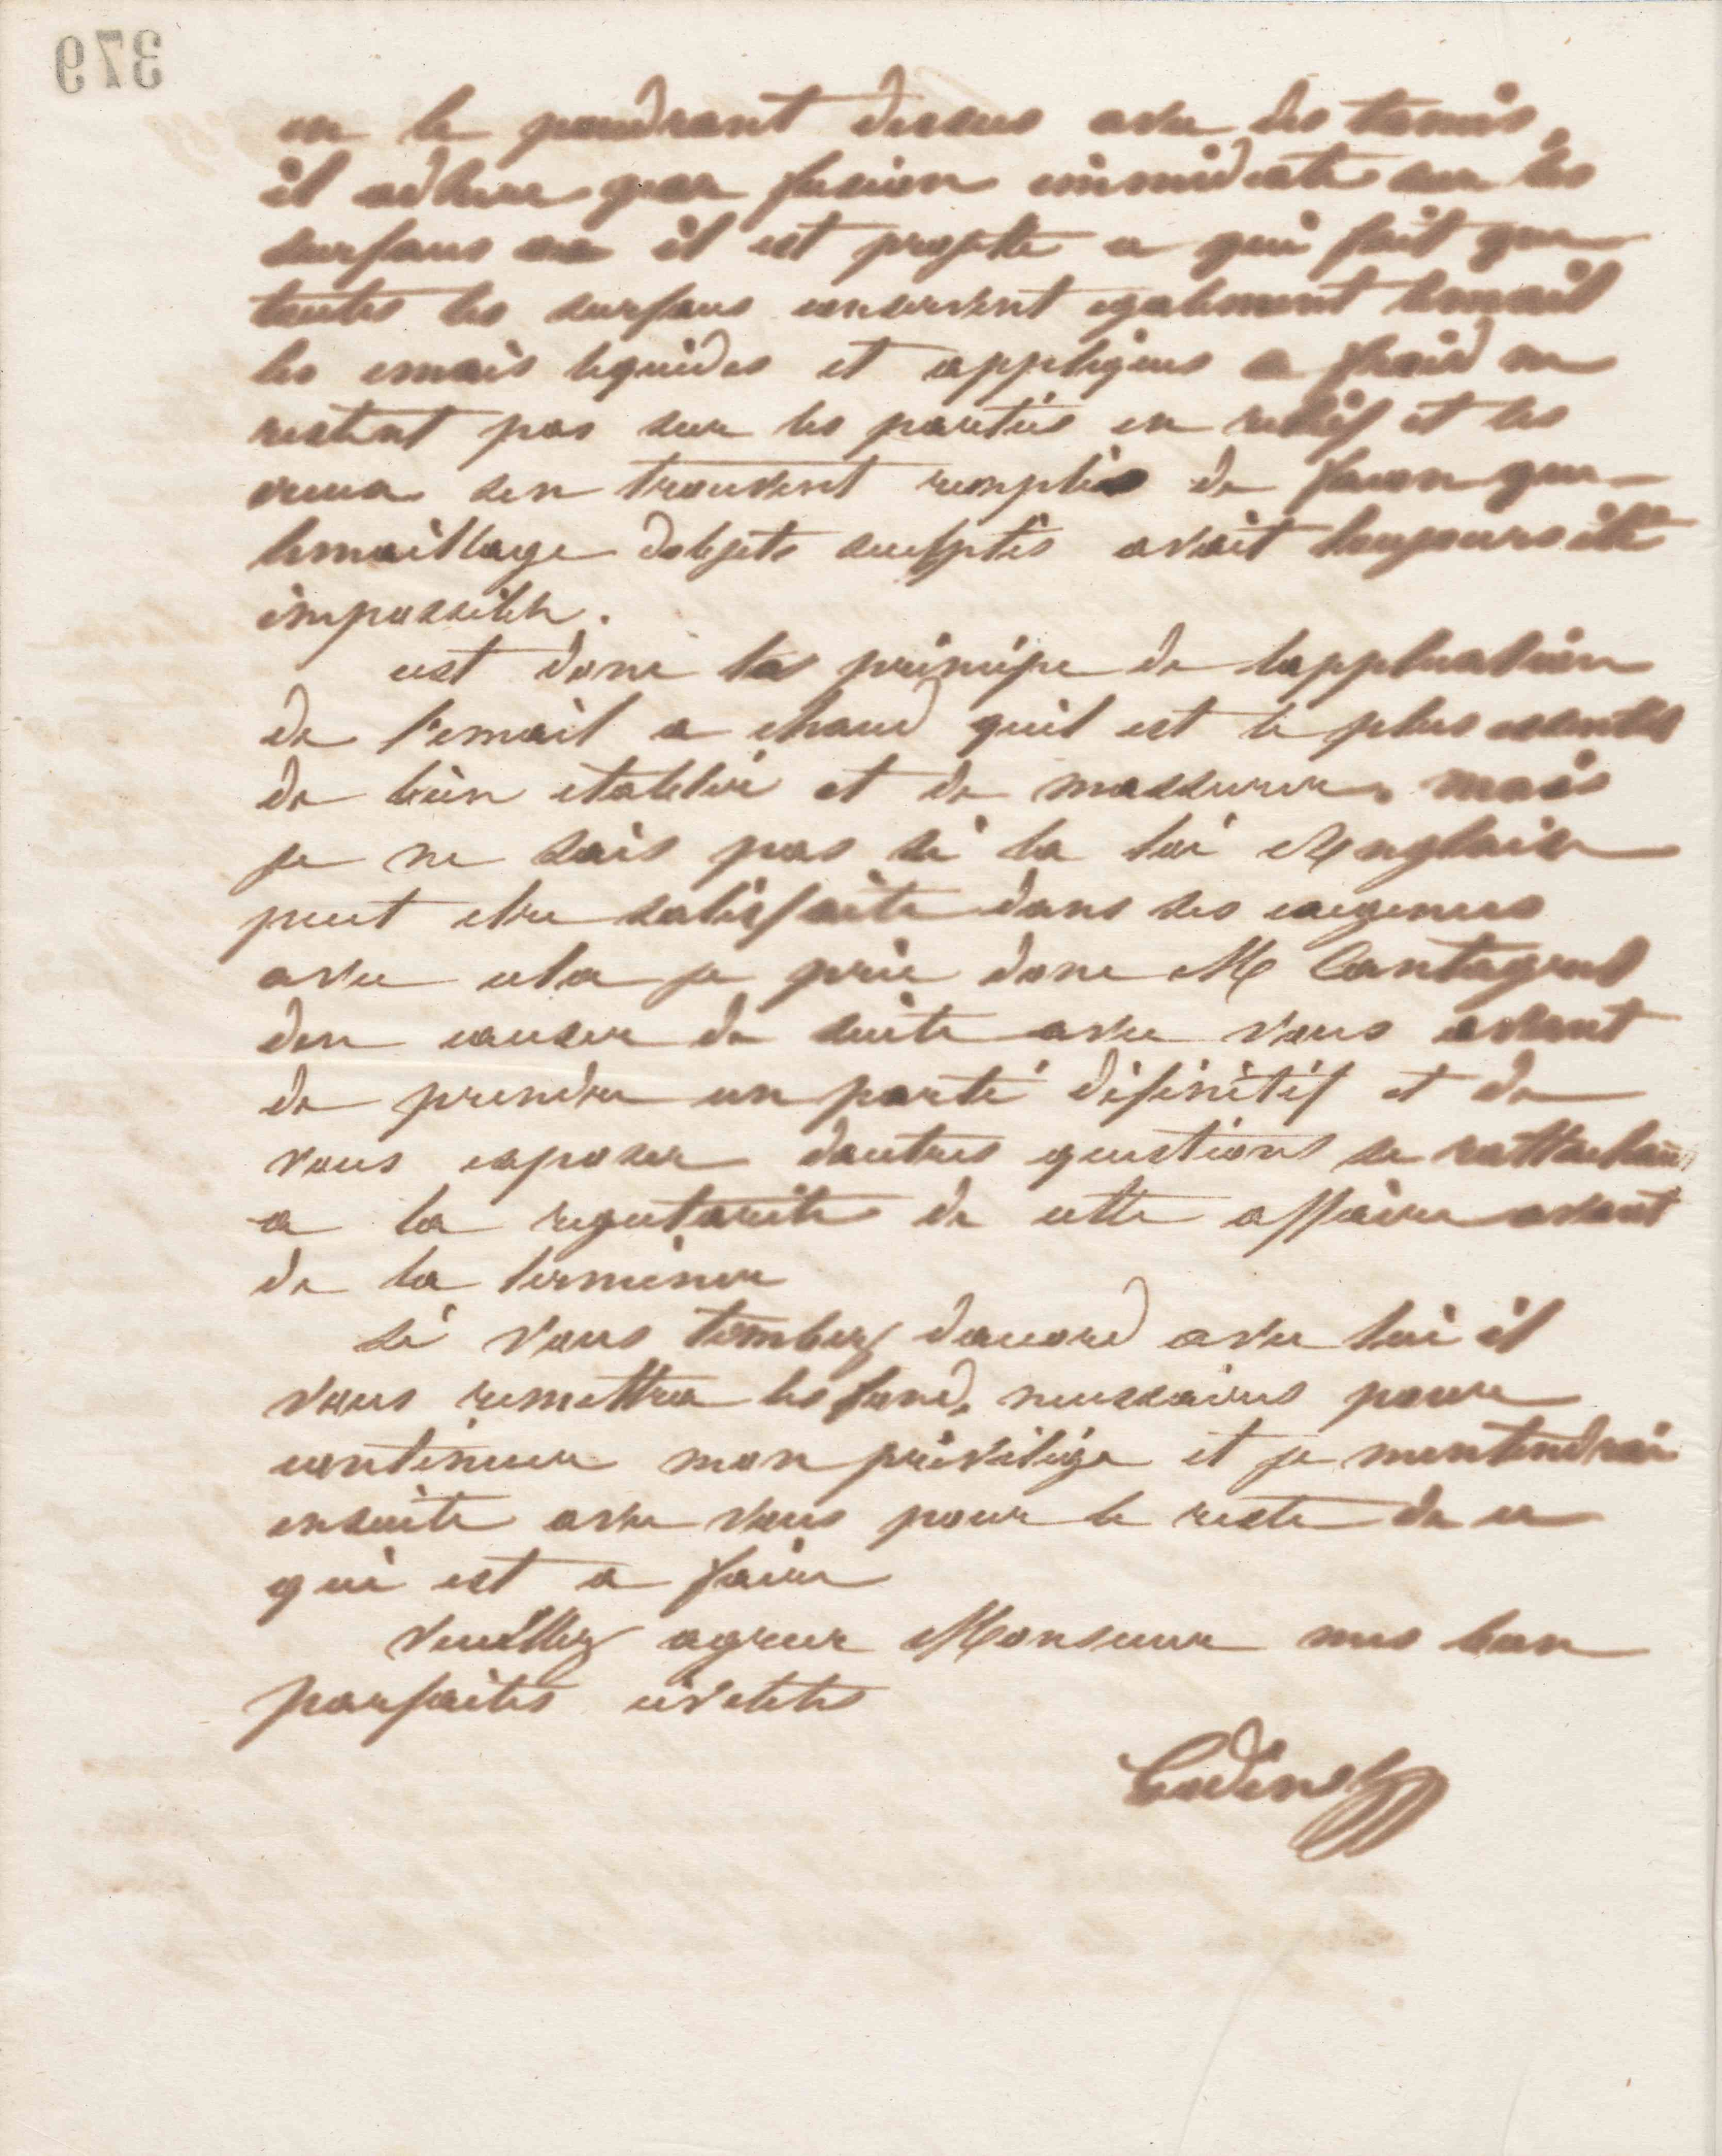 379
en le poudrant dessus avec des tamis,
il adhere par fusion immediate sur les
surfaces ou il est projeté ce qui fait que
toutes les surfaces conservent egalement lemail
les emais liquides et appliques a froid ne
restent pas sur les parties en relief et les
creux sen trouvent remplis de facon que
lemaillage dobjets sculptés avait toujours été
impossible.
cest donc le principe de lapplication
de l'email a chaud quil est le plus essentiel
de bien etablir et de massurer. mais
je ne sais pas si la loi Anglaise
peut etre satisfaite dans ses exigences
avec cela je prie donc M Cantagrel
den causer de suite avec vous avant
de prendre un parti définitif et de
vous exposer dautres questions se rattachant
a la regularité de cette affaire avant
de la terminer
si vous tombez daccord avec lui il
vous remettra les fonds necessaires pour
continuer mon privilége et je mentendrai
ensuite avec vous pour le reste de ce
qui est a faire
Veuillez agreer Monsieur mes
parfaites civilités
Godin